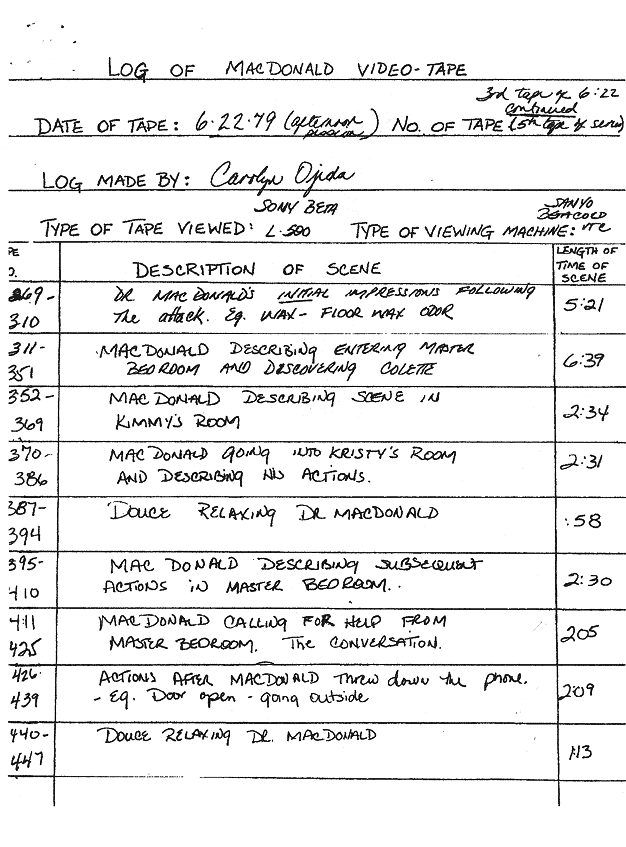 LOG OF MACDONALD VIDEO-TAPE
3rd tape of 6:22
continued
DATE OF TAPE: 6.22.79 (afternoon session) NO. OF TAPE (5th tape of series)
LOG MADE BY: Carolyn Ojeda
SONY BETA
SANYO
BETACORD
TYPE OF TAPE VIEWED: L-500 TYPE OF VIEWING MACHINE: VTC
PE
O.
DESCRIPTION OF SCENE
LENGTH OF
TIME OF
SCENE
269-
310
DR MAC DONALD'S INITIAL IMPRESSIONS FOLLOWING
The attack. Eg. WAX- FLOOR WAX ODOR
5:21
311-
351
MACDONALD DESCRIBING ENTERING MASTER
BEDROOM AND DISCOVERING COLETTE
6:39
352-
369
MAC DONALD DESCRIBING SCENE IN
KIMMY'S ROOM
2:34
370-
386
MAC DONALD GOING INTO KRISTY'S ROOM
AND DESCRIBING HIS ACTIONS.
2:31
387-
394
DOUCE RELAXING DR MACDONALD
:58
395-
410
MAC DONALD DESCRIBING SUBSEQUENT
ACTIONS IN MASTER BEDROOM..
2:30
411
425
MACDONALD CALLING FOR HELP FROM
MASTER BEDROOM. The CONVERSATION.
205
426-
439
ACTIONS AFTER MACDONALD Threw down the phone.
- Eg. Door open - going outside
209
440-
447
DOUCE RELAXING DR. MACDONALD
1:13